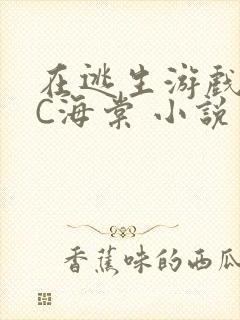 在逃生游戏
C海棠 小说
香蕉味的西瓜